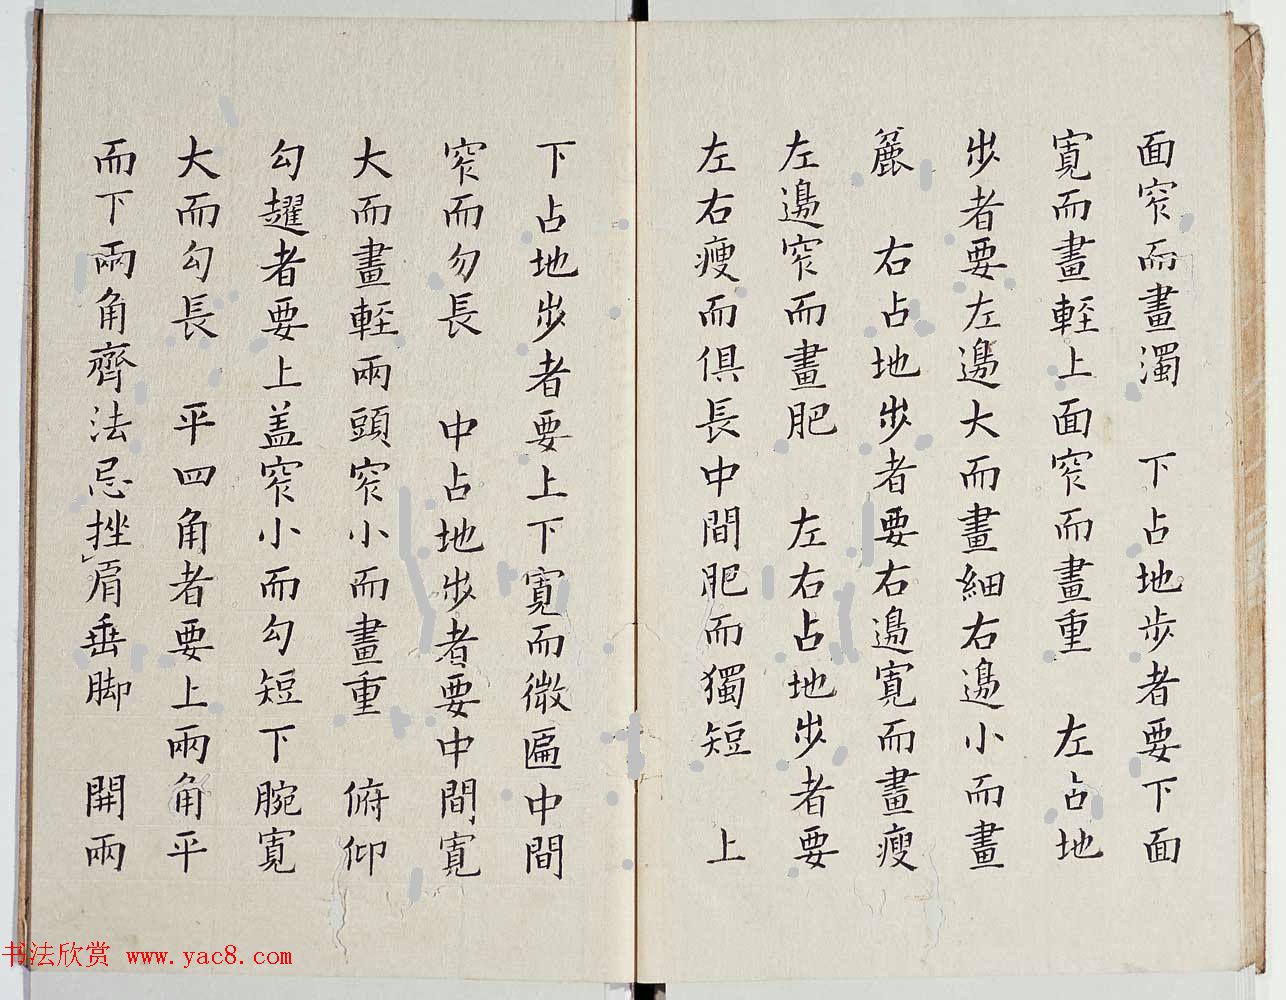 面窄而畫濁　下占地步者要下面
寬而畫輕上面窄而畫重　左占地
步者要左邊大而畫細右邊小而畫
麄　右占地步者要右邊寬而畫瘦
左邊窄而畫肥　左右占地步者要
左右瘦而俱長中間肥而獨短　上
下占地步者要上下寬而微匾中間
窄而勿長　中占地步者要中間寬
大而畫輕兩頭窄小而畫重　俯仰
勾趯者要上盖窄小而勾短下腕寬
大而勾長　平四角者要上兩角平
而下兩角齊法忌挫肩垂脚　開兩
书法欣赏 www.yac8.com